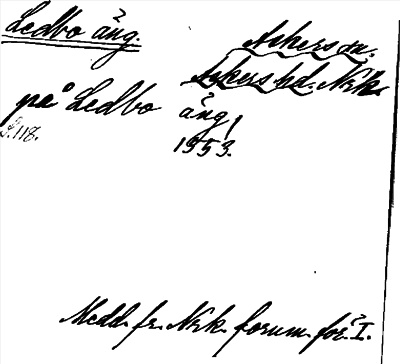 Ledbo äng.
Askers sn.
Askers hd. Nrk.
på Ledbo äng,
S. 118.
1953.
Medd. fr. Nrk. fornm. för. I.